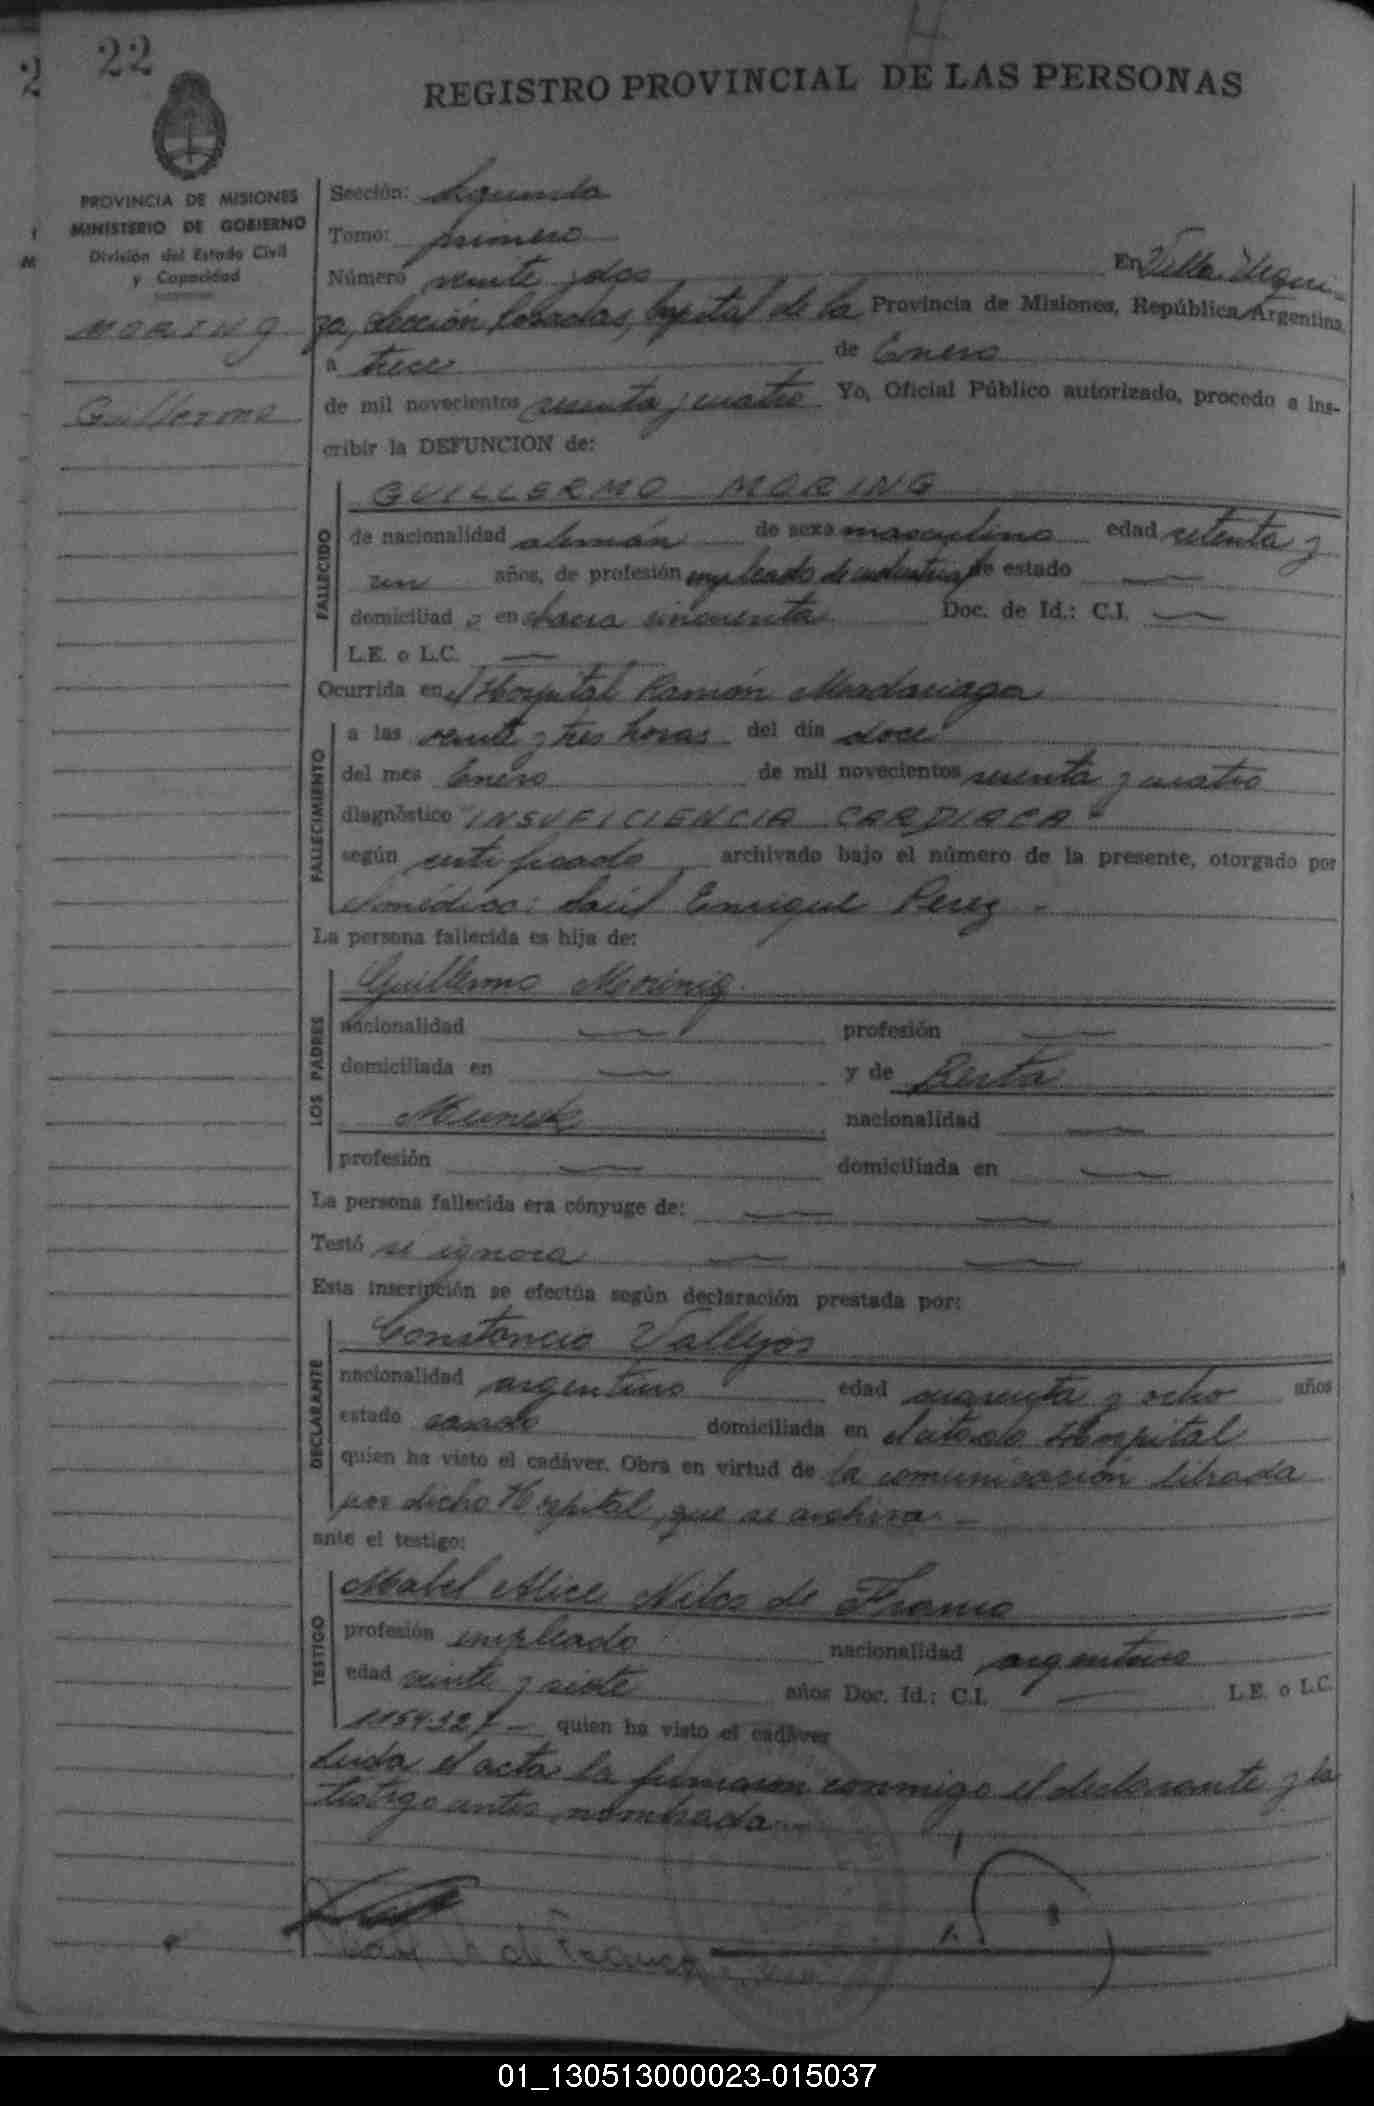 22
REGISTRO PROVINCIAL DE LAS PERSONAS
PROVINCIA DE MISIONES
MINISTERIO DE GOBIERNO
División del Estado Civil
y Capacidad
MORING
Guillermo
Sección: Segunda
Tomo: primero
Número veinte y dos En Villa Urqui-
za, Sección Posadas, Capital de la Provincia de Misiones, República Argentina,
a trece de Enero
de mil novecientos sesenta y cuatro Yo, Oficial Público autorizado, procedo a ins-
cribir la DEFUNCION de:
GUILLERMO MORING
FALLECIDO
de nacionalidad alemán de sexo masculino edad setenta y
un años, de profesión empleado de industria de estado
domiciliad o en chacra cincuenta Doc. de Id.: C.I.
L.E. o L.C.
Ocurrida en el Hospital Ramón Madariaga
FALLECIMIENTO
a las veinte y tres horas del día doce
del mes Enero de mil novecientos sesenta y cuatro
diagnóstico "INSUFICIENCIA CARDIACA"
según certificado archivado bajo el número de la presente, otorgado por
el médico: Saúl Enrique Perez -
La persona fallecida es hija de:
LOS PADRES
Guillermo Moring
nacionalidad profesión
domiciliada en y de Berta
nacionalidad
profesión domiciliada en
La persona fallecida era cónyuge de:
Testó se ignora
Esta inscripción se efectúa según declaración prestada por:
DECLARANTE
Constancio Vallejos
nacionalidad argentino edad cuarenta y ocho años
estado casado domiciliada en el citado Hospital
quien ha visto el cadáver. Obra en virtud de la comunicación librada
por dicho Hospital, que se archiva. -
ante el testigo:
TESTIGO
Mabel Alice de Franco
profesión empleado nacionalidad argentina
edad veinte y siete años Doc. Id.: C.I. L.E. o L.C.
quien ha visto el cadáver
Leida el acta la firmaron conmigo el declarante y la
testigo antes nombrada -
de Franco
01_130513000023-015037